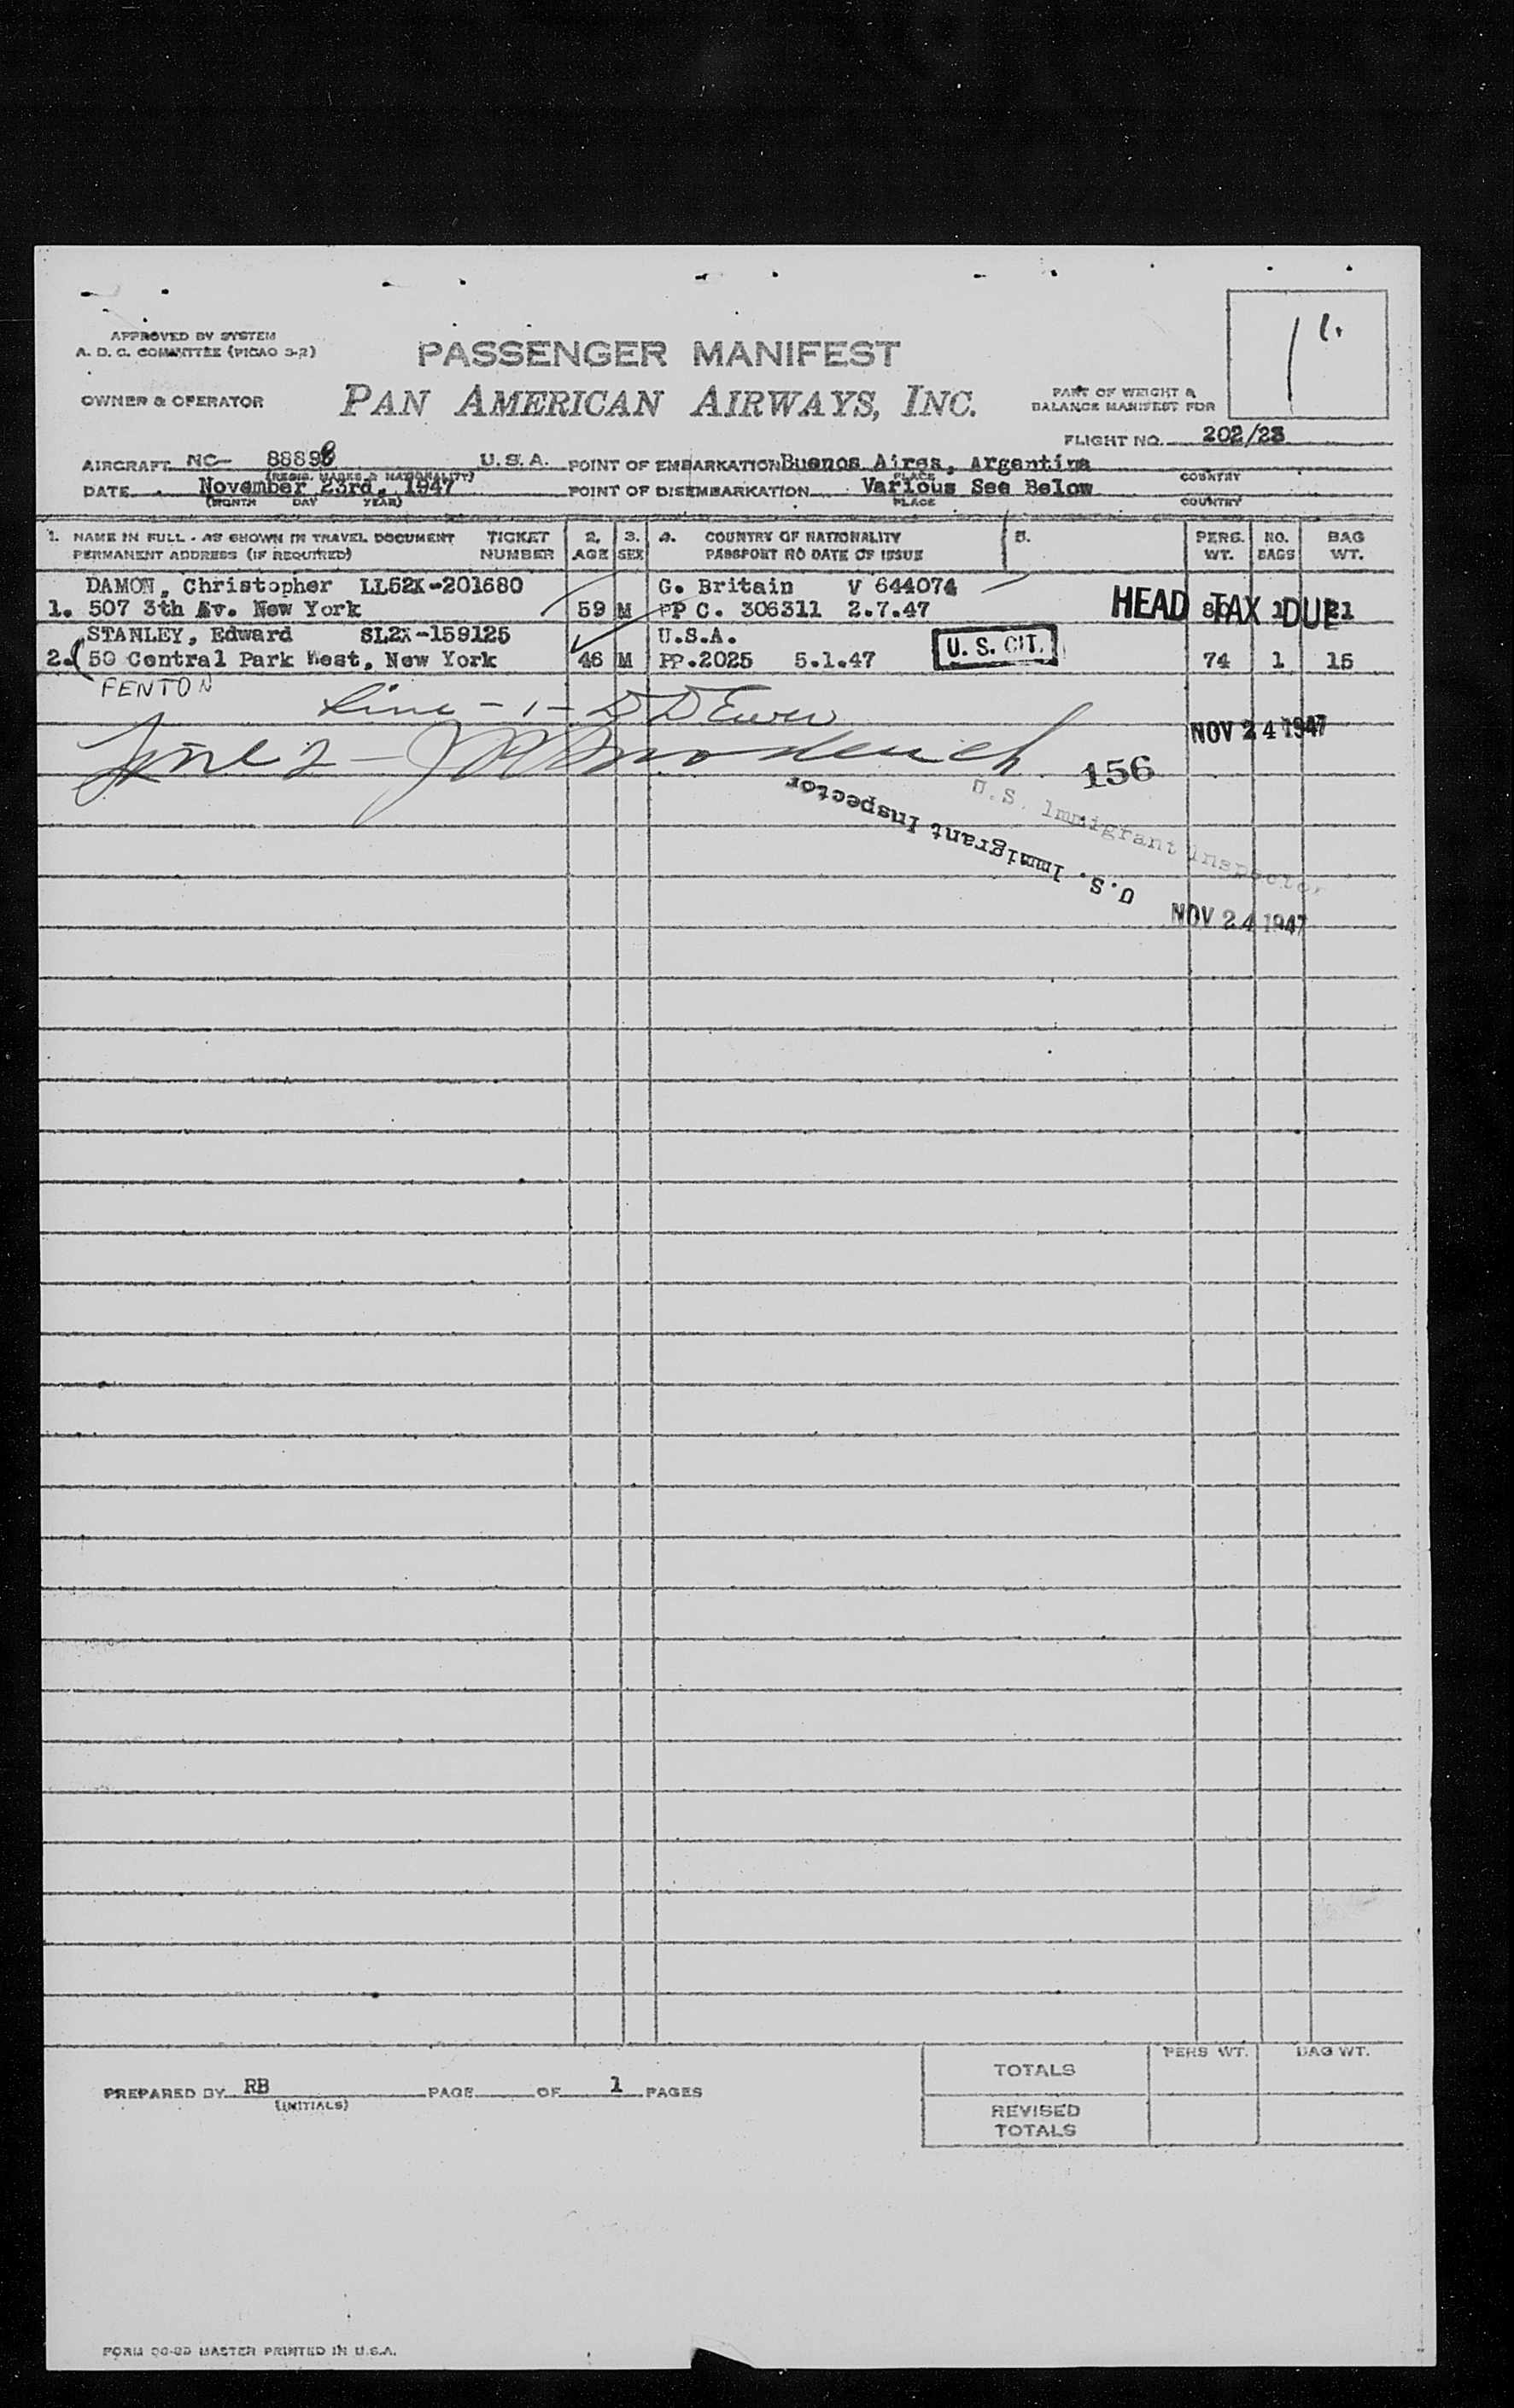 APPROVED BY SYSTEM
A. D. C. COMMITTEE (PICAO 3-2)
PASSENGER MANIFEST
OWNER & OPERATOR
PAN AMERICAN AIRWAYS, INC.
PART OF WEIGHT &
BALANCE MANIFEST FOR
FLIGHT NO. 202/23
AIRCRAFT NC- 88898 U.S.A. POINT OF EMBARKATION Buenos Aires, Argentina
(REGIS. MARKS & NATIONALITY) PLACE COUNTRY
DATE November 23rd, 1947 POINT OF DISEMBARKATION Various See Below
(MONTH DAY YEAR) PLACE COUNTRY
1. NAME IN FULL - AS SHOWN IN TRAVEL DOCUMENT TICKET 2. 3. 4. COUNTRY OF NATIONALITY 5. PERS. NO. BAG
PERMANENT ADDRESS (IF REQUIRED) NUMBER AGE SEX PASSPORT NO DATE OF ISSUE WT. BAGS WT.
DAMON, Christopher LL52X-201680 G. Britain V 644074
1. 507 3th Av. New York 59 M PP C. 306311 2.7.47 HEAD TAX DUE 1 21
STANLEY, Edward SL2X-159125 U.S.A.
2. 50 Central Park West, New York 46 M PP.2025 5.1.47 U. S. CIT. 74 1 15
FENTON
Line - 1 -
NOV 24 1947
Line 2 -
156
U.S. Immigrant Inspector
U.S. Immigrant Inspector
NOV 24 1947
PERS WT. BAG WT.
TOTALS
PREPARED BY RB PAGE OF 1 PAGES
(INITIALS)
REVISED
TOTALS
MASTER PRINTED IN U.S.A.